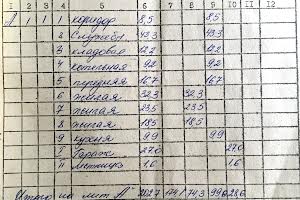 1 2 3 4 5 6 7 8 9 10 11 12
А 1 1 1 коридор 8,5 8,5
2 Служебн. 43.3 43.3
3 кладовая 12.2 12.2
4 котельная 9.2 9.2
5 передняя 16.7 16.7
6 жилая 32.3 32.3
7 жилая 23.5 23.5
8 жилая 18.5 18.5
9 кухня 9.9 9.9
I Гараж 27.0 27.0
II Лестница 1.6 1.6
Итого по лит „А" 74,3 28,6